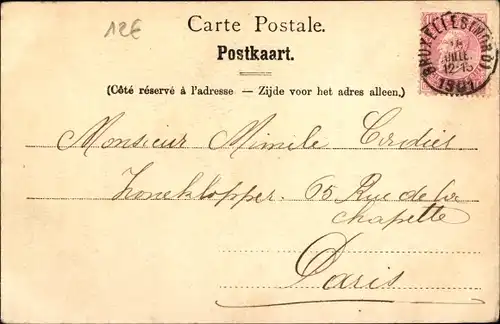 12€
Carte Postale.
Postkaart.
(Côté réservé à l'adresse — Zijde voor het adres alleen.)
BRUXELLES (NORD)
JUIL
12-15
1901
Monsieur Mimile Cordier
65 Rue de la
chapelle
Paris